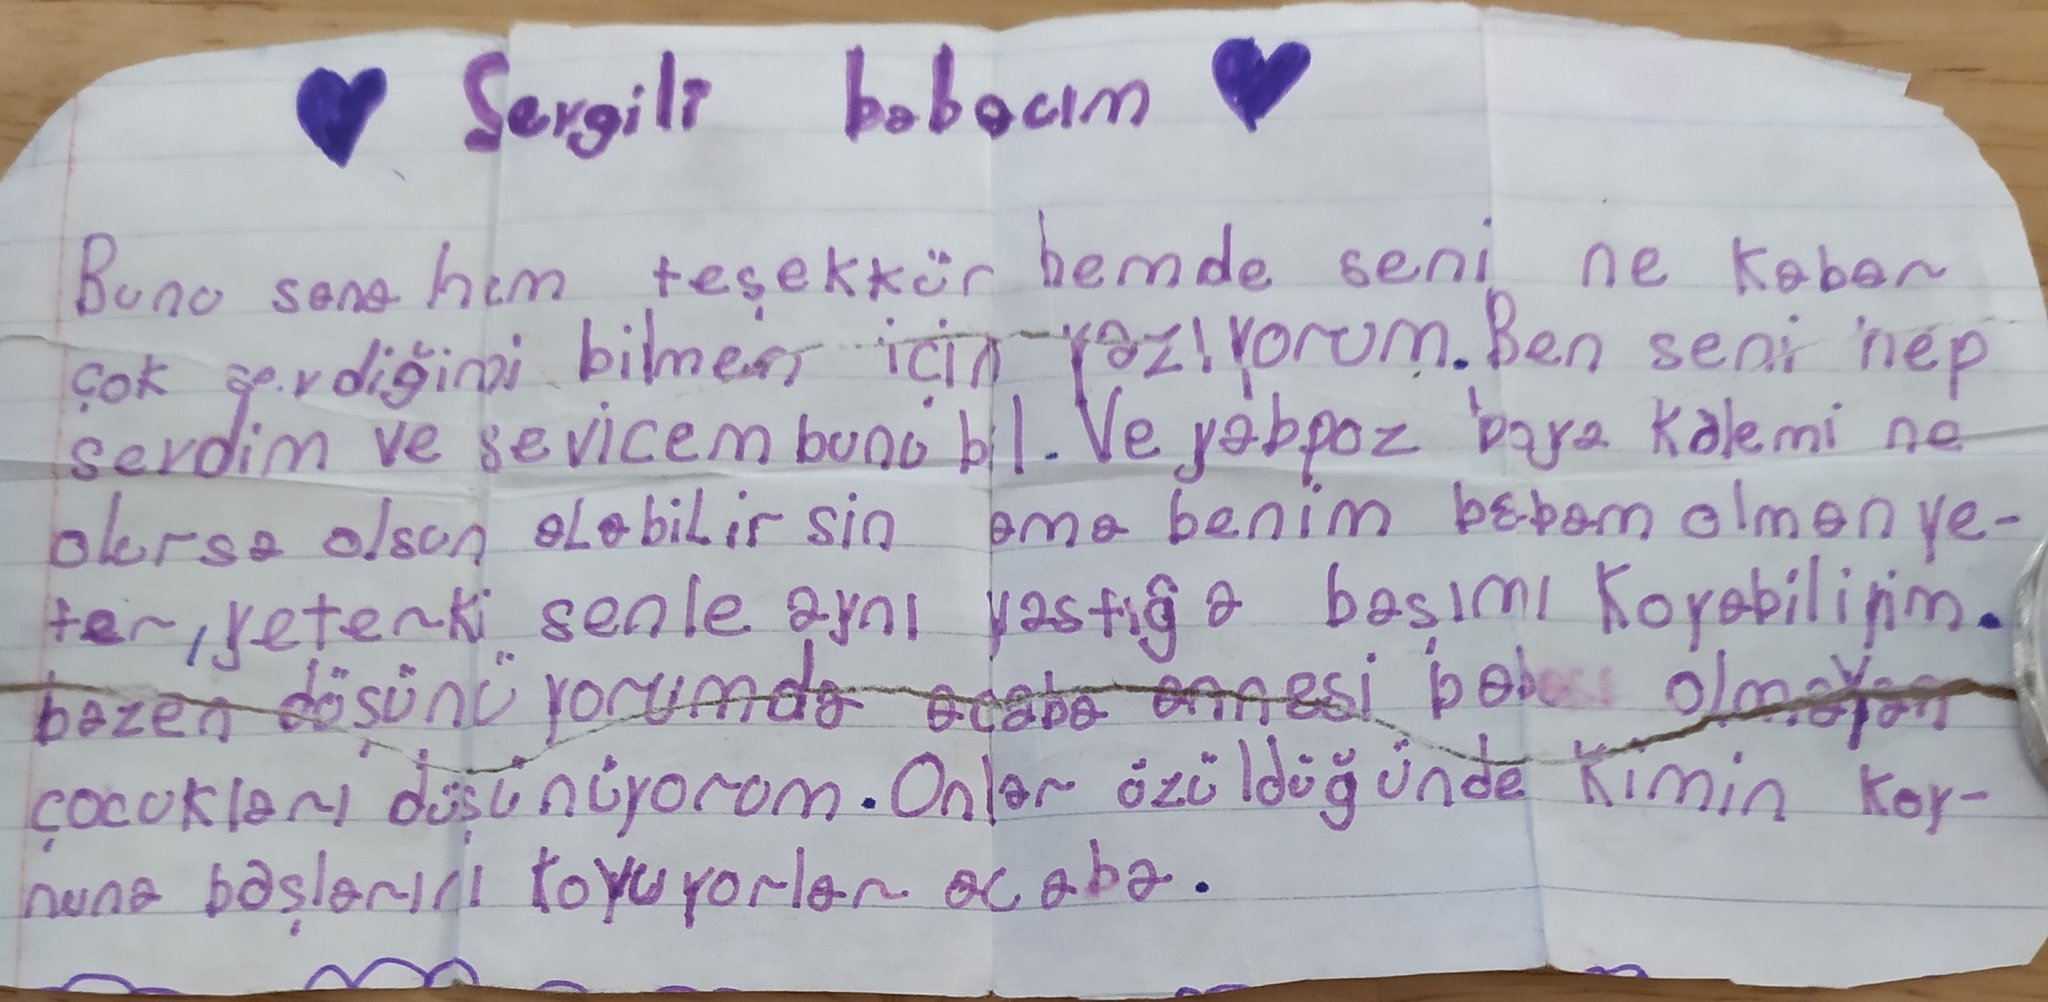 Sevgili babacım
Bunu sana hem teşekkür hemde seni ne kabar
çok sevdiğimi bilmen için yazıyorum. Ben seni hep
sevdim ve sevicem bunu bil. Ve yabpoz boya kalemi ne
olursa olsun alabilirsin ama benim babam olman ye-
ter, yeterki senle aynı yastığa başımı koyabiliyim.
bazen düşünüyorumda acaba annesi babası olmayan
çocukları düşünüyorum. Onlar üzüldüğünde kimin koy-
nuna başlarını koyuyorlar acaba.